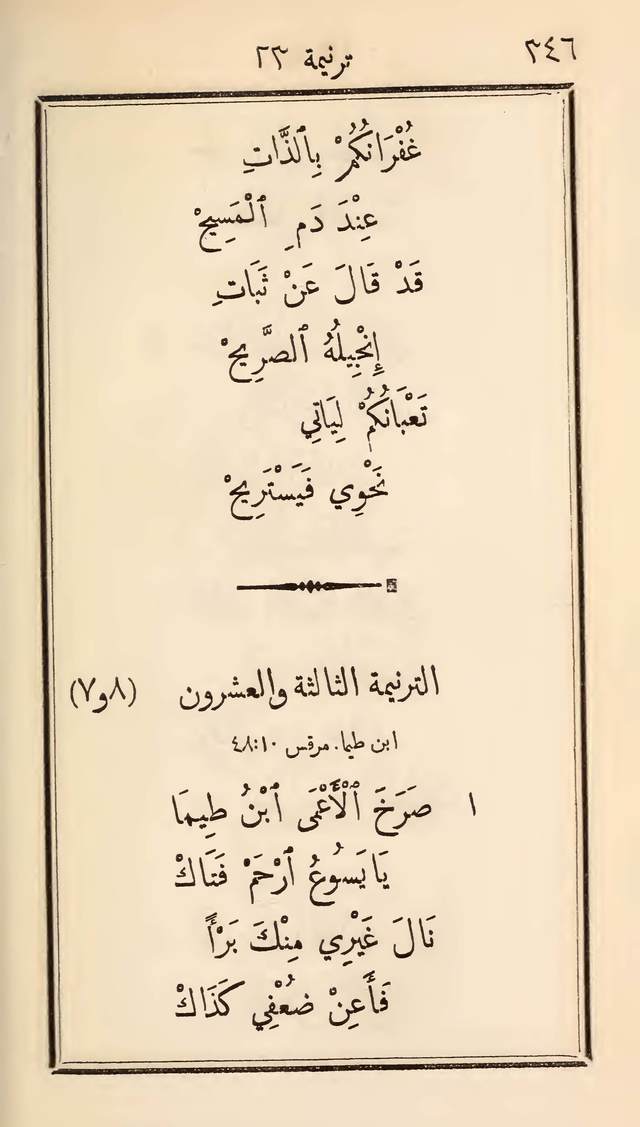 ٣٤٦ ترنيمة ٢٣
غُفْرَانُكُمْ بِٱلذَّاتِ
عِنْدَ دَمِ ٱلْمَسِيحْ
قَدْ قَالَ عَنْ ثَبَاتِ
إِنْجِيلُهُ ٱلصَّرِيحْ
تَعْبَانُكُمْ لِيَاتِي
نَحْوِي فَيَسْتَرِيحْ
الترنيمة الثالثة والعشرون (٨و٧)
ابن طيما. مرقس ١٠:٤٨
١ صَرَخَ ٱلْأَعْمَى ٱبْنُ طِيمَا
يَا يَسُوعُ ٱرْحَمْ فَتَاكْ
نَالَ غَيْرِي مِنْكَ بَرْأً
فَأَعِنْ ضُعْفِي كَذَاكْ